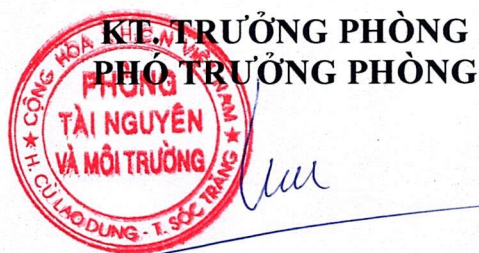 KT. TRƯỞNG PHÒNG
PHÓ TRƯỞNG PHÒNG
CỘNG HÒA X.H.C.N VIỆT NAM
PHÒNG
TÀI NGUYÊN
VÀ MÔI TRƯỜNG
H. CÙ LAO DUNG - T. SÓC TRĂNG